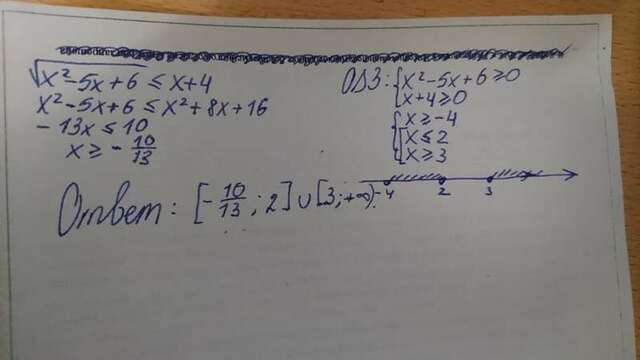 √x²-5x+6 ≤ x+4
x²-5x+6 ≤ x²+8x+16
-13x ≤ 10
x ≥ -10/13
ОДЗ: { x²-5x+6 ≥ 0
x+4 ≥ 0
{ x ≥ -4
[ x ≤ 2
x ≥ 3
-4 2 3
Ответ: [-10/13; 2] ∪ [3; +∞).